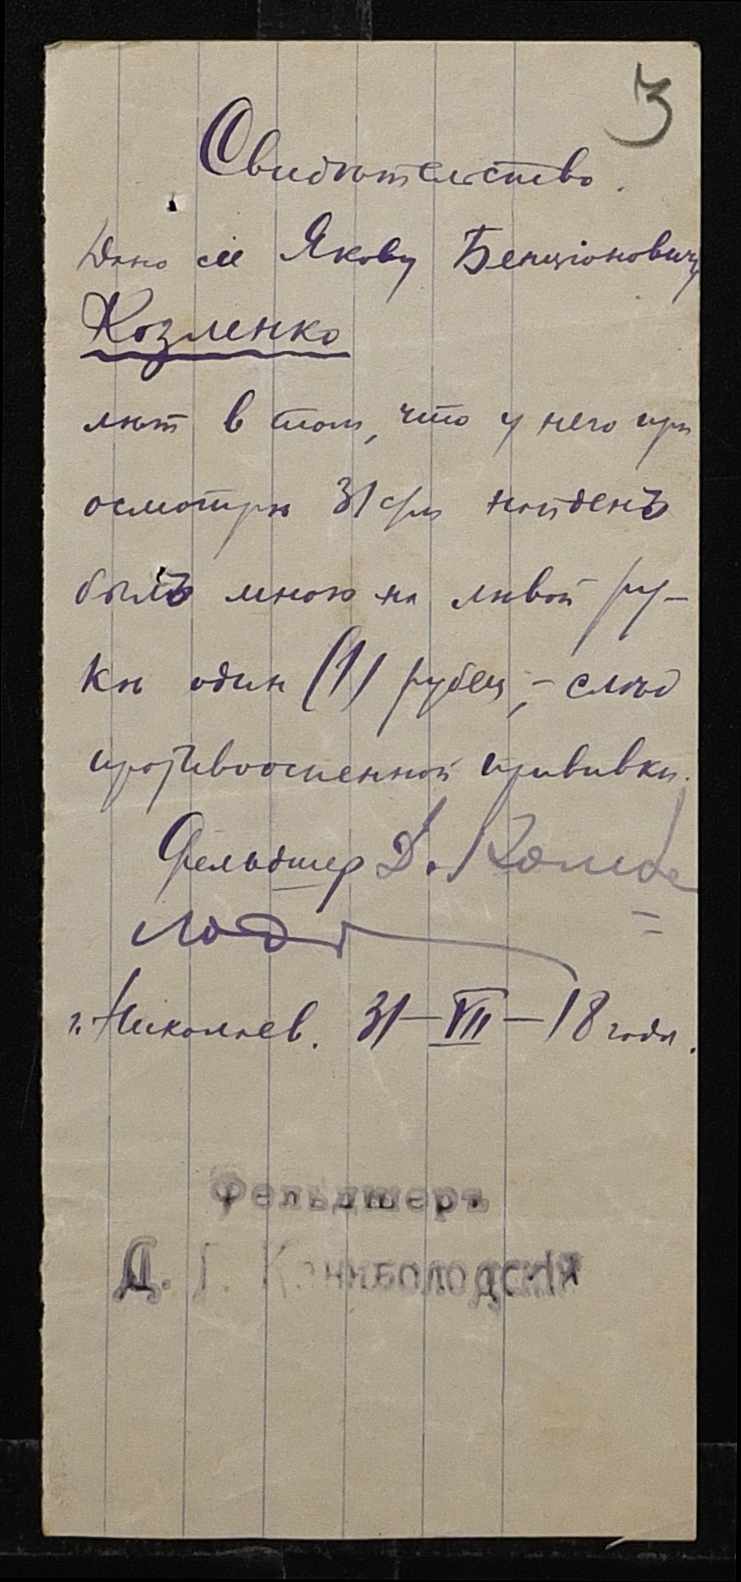 3
Свидѣтельство.
Дано сіе Якову Бенціоновичу
Козленко
лѣт в том, что у него при
осмотрѣ 31 найденъ
былъ мною на лѣвой ру-
кѣ один (1) рубец, - слѣд
противооспенной прививки.
Фельдшер Д.
г. Николаев. 31-VII-18 года.
Фельдшеръ
Д. Г.